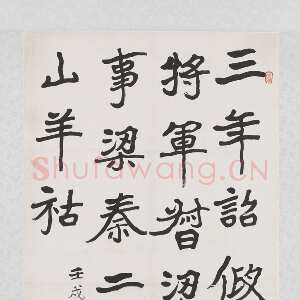 三年詔假
將軍督梁
事梁秦二
山羊祜
壬戌
Shufawang.CN